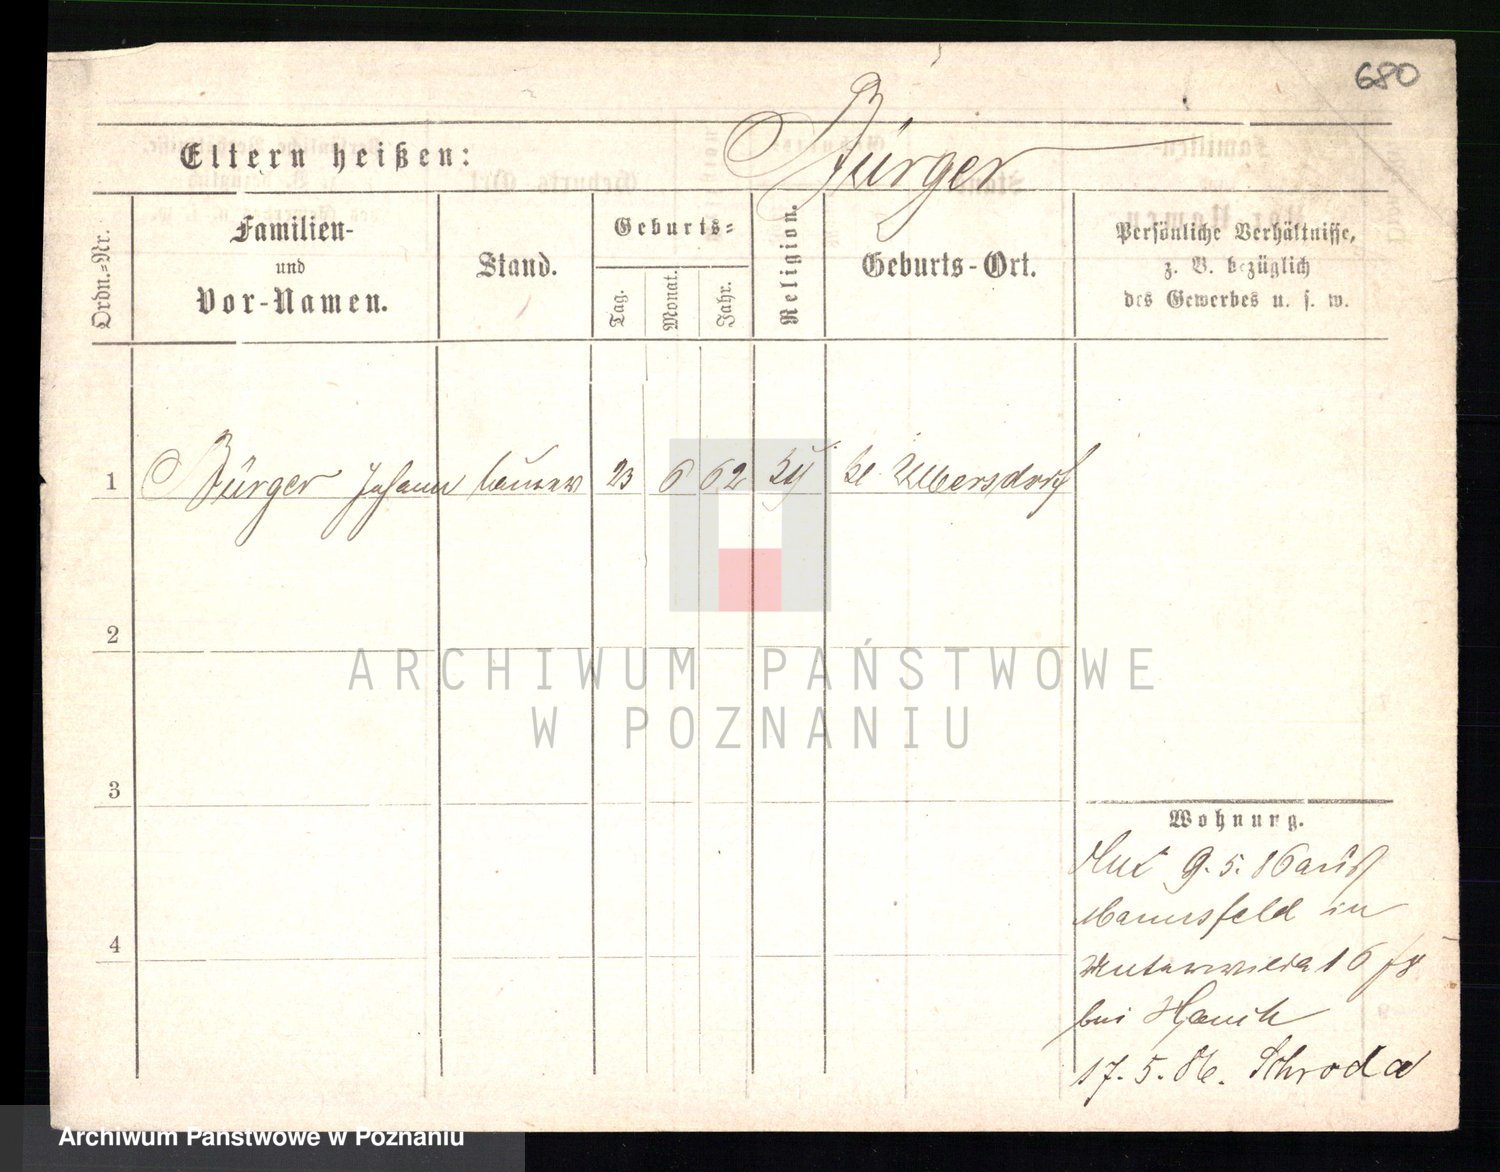 680
Eltern heißen: Bürger
Ordn.-Nr.
Familien-
und
Vor-Namen.
Stand.
Geburts-
Tag.
Monat.
Jahr.
Religion.
Geburts-Ort.
Persönliche Verhältnisse,
z. B. bezüglich
des Gewerbes u. s. w.
1 Bürger Johann 23 6 62 Kl. Ulbersdorf
2
3
4
ARCHIWUM PAŃSTWOWE
W POZNANIU
Wohnung.
9. 5. 86 aus
in
16
bei
17. 5. 86. Schroda
Archiwum Państwowe w Poznaniu